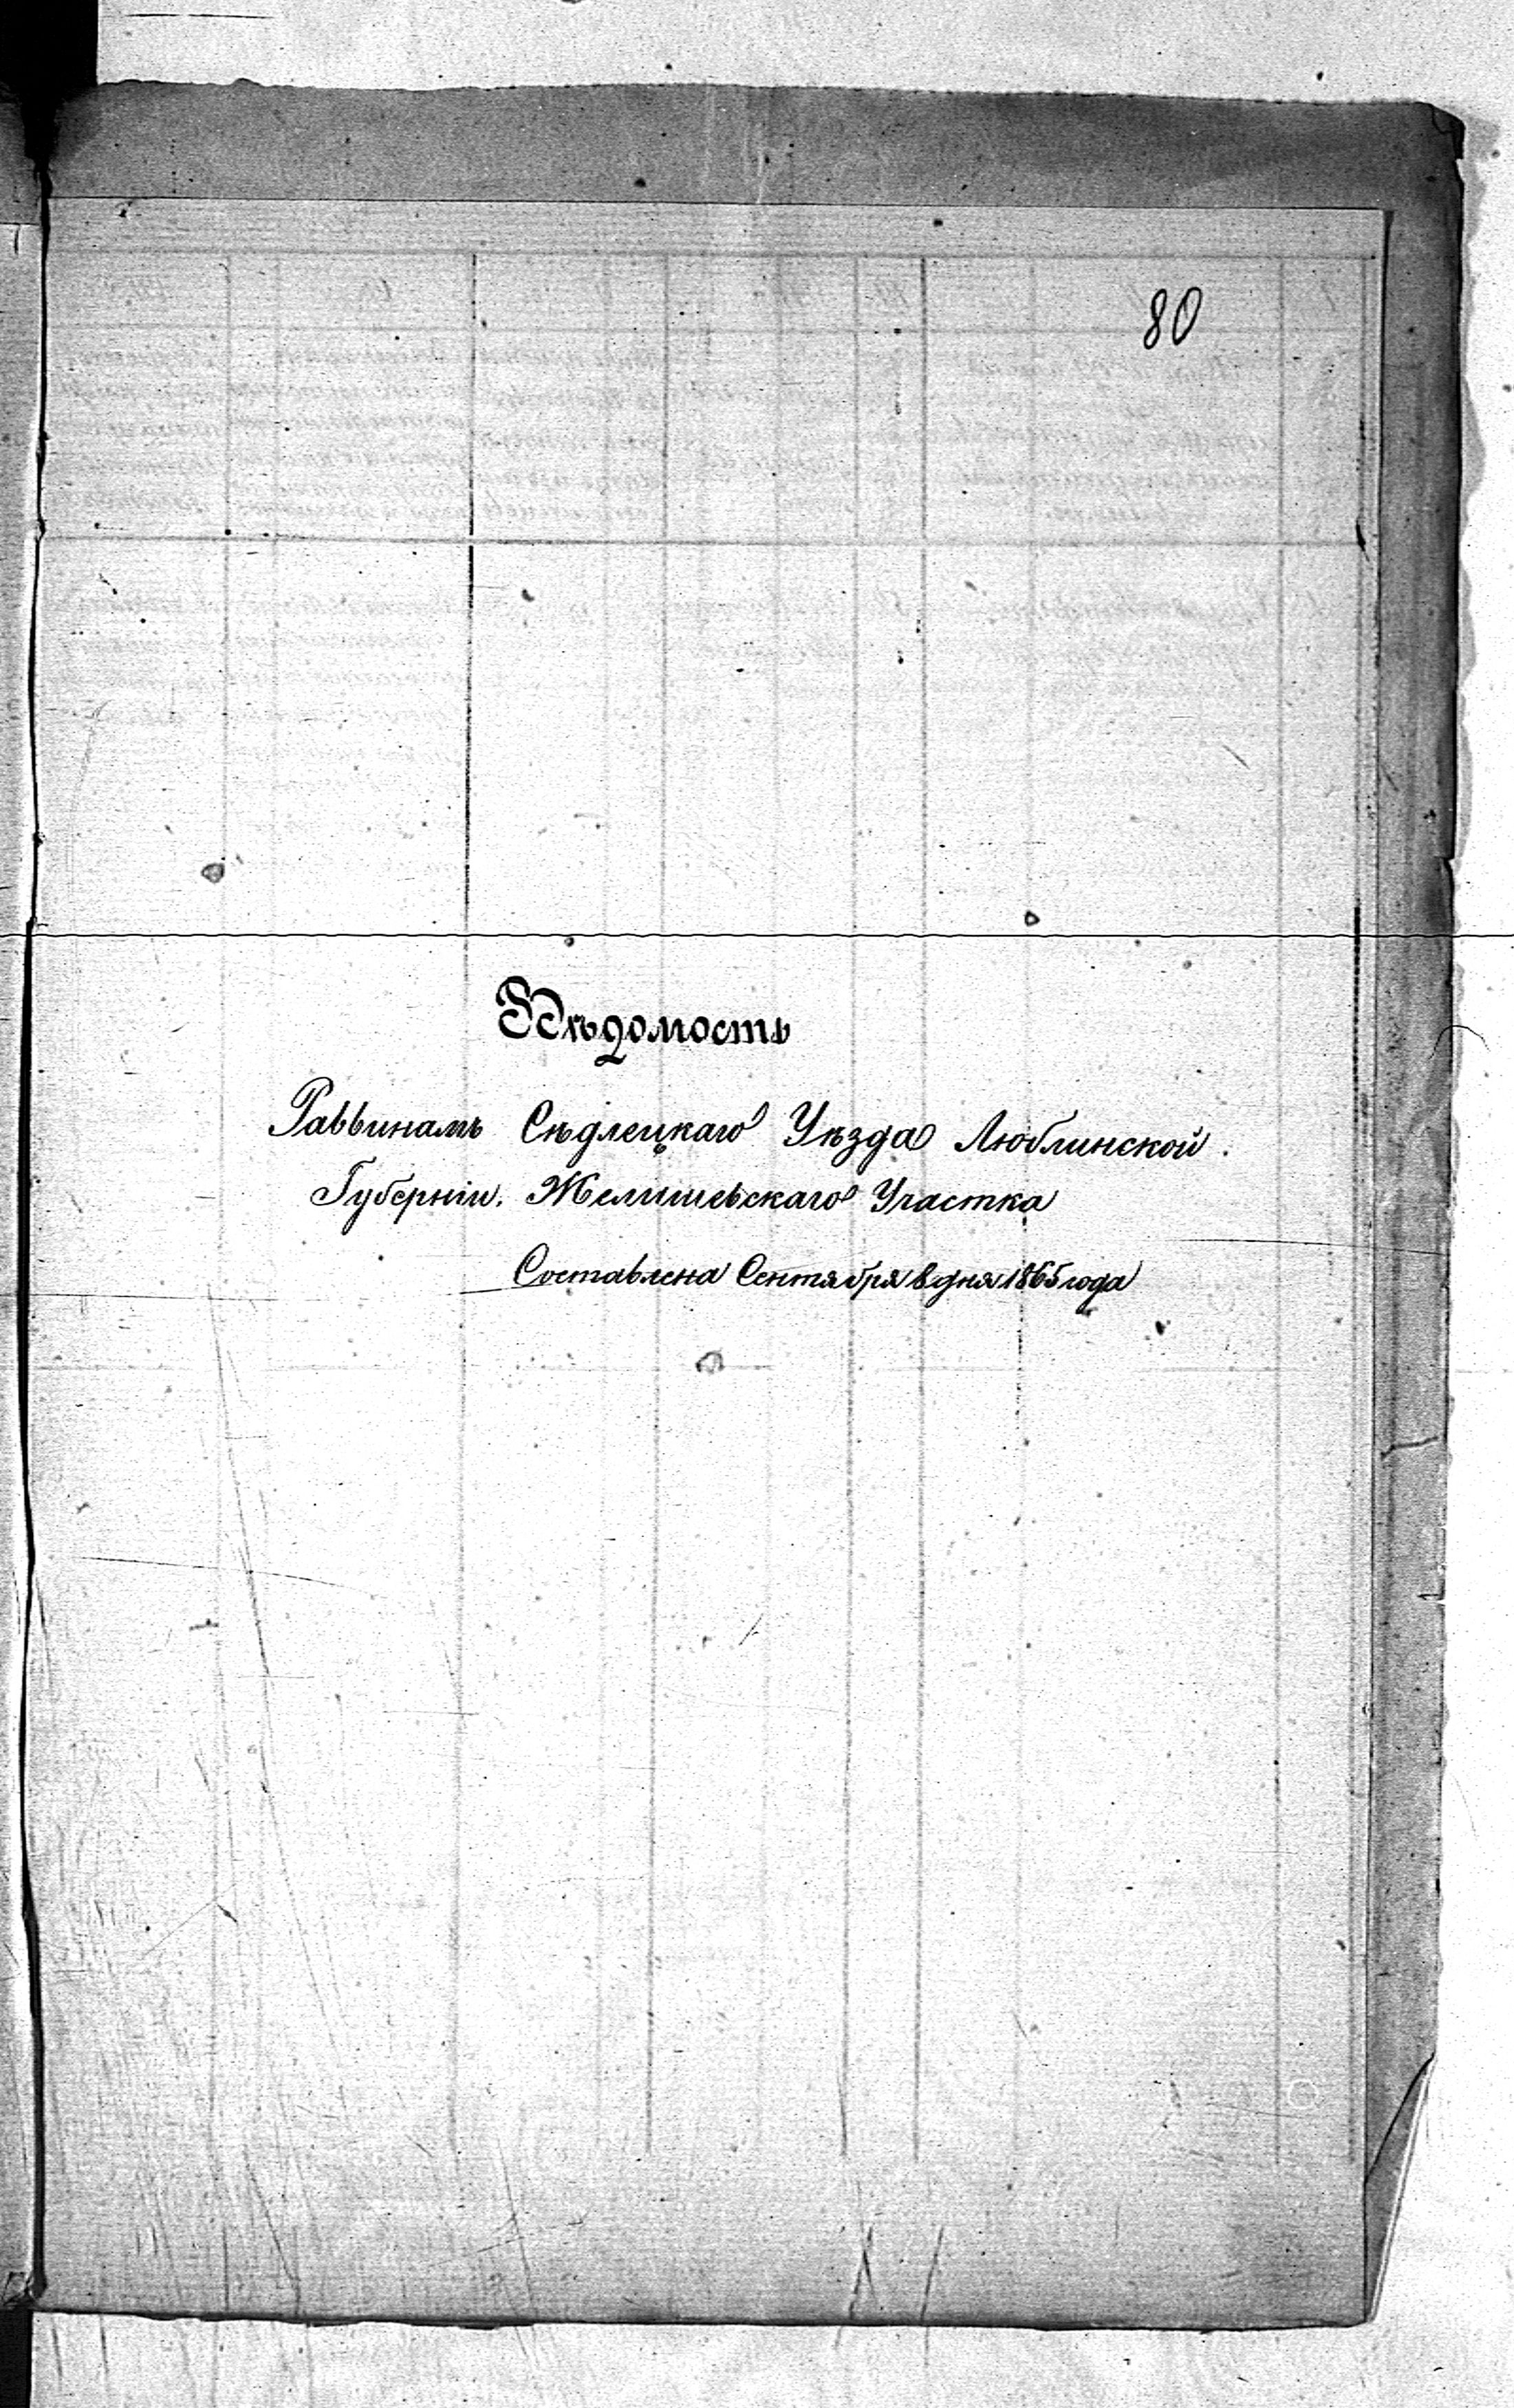 80
Вѣдомость
Раввинамъ Сѣдлецкаго Уѣзда Люблинской.
Губерніи. Желишевскаго Участка
Составлена Сентября 8 дня 1865 года